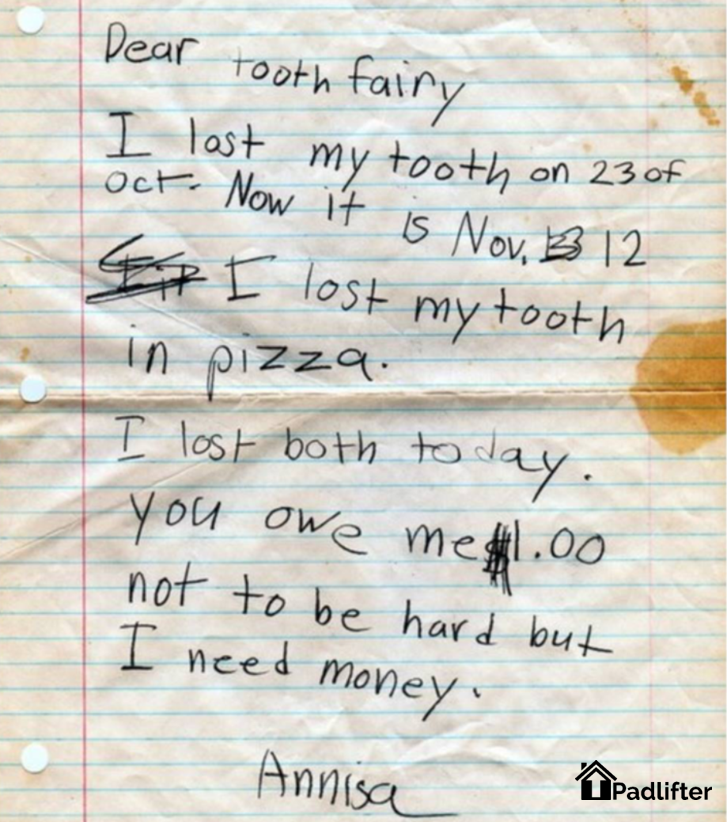 Dear tooth fairy
I lost my tooth on 23 of
Oct. Now it is Nov. 12
I lost my tooth
in pizza.
I lost both today.
you owe me $1.00
not to be hard but
I need money.
Annisa
Padlifter